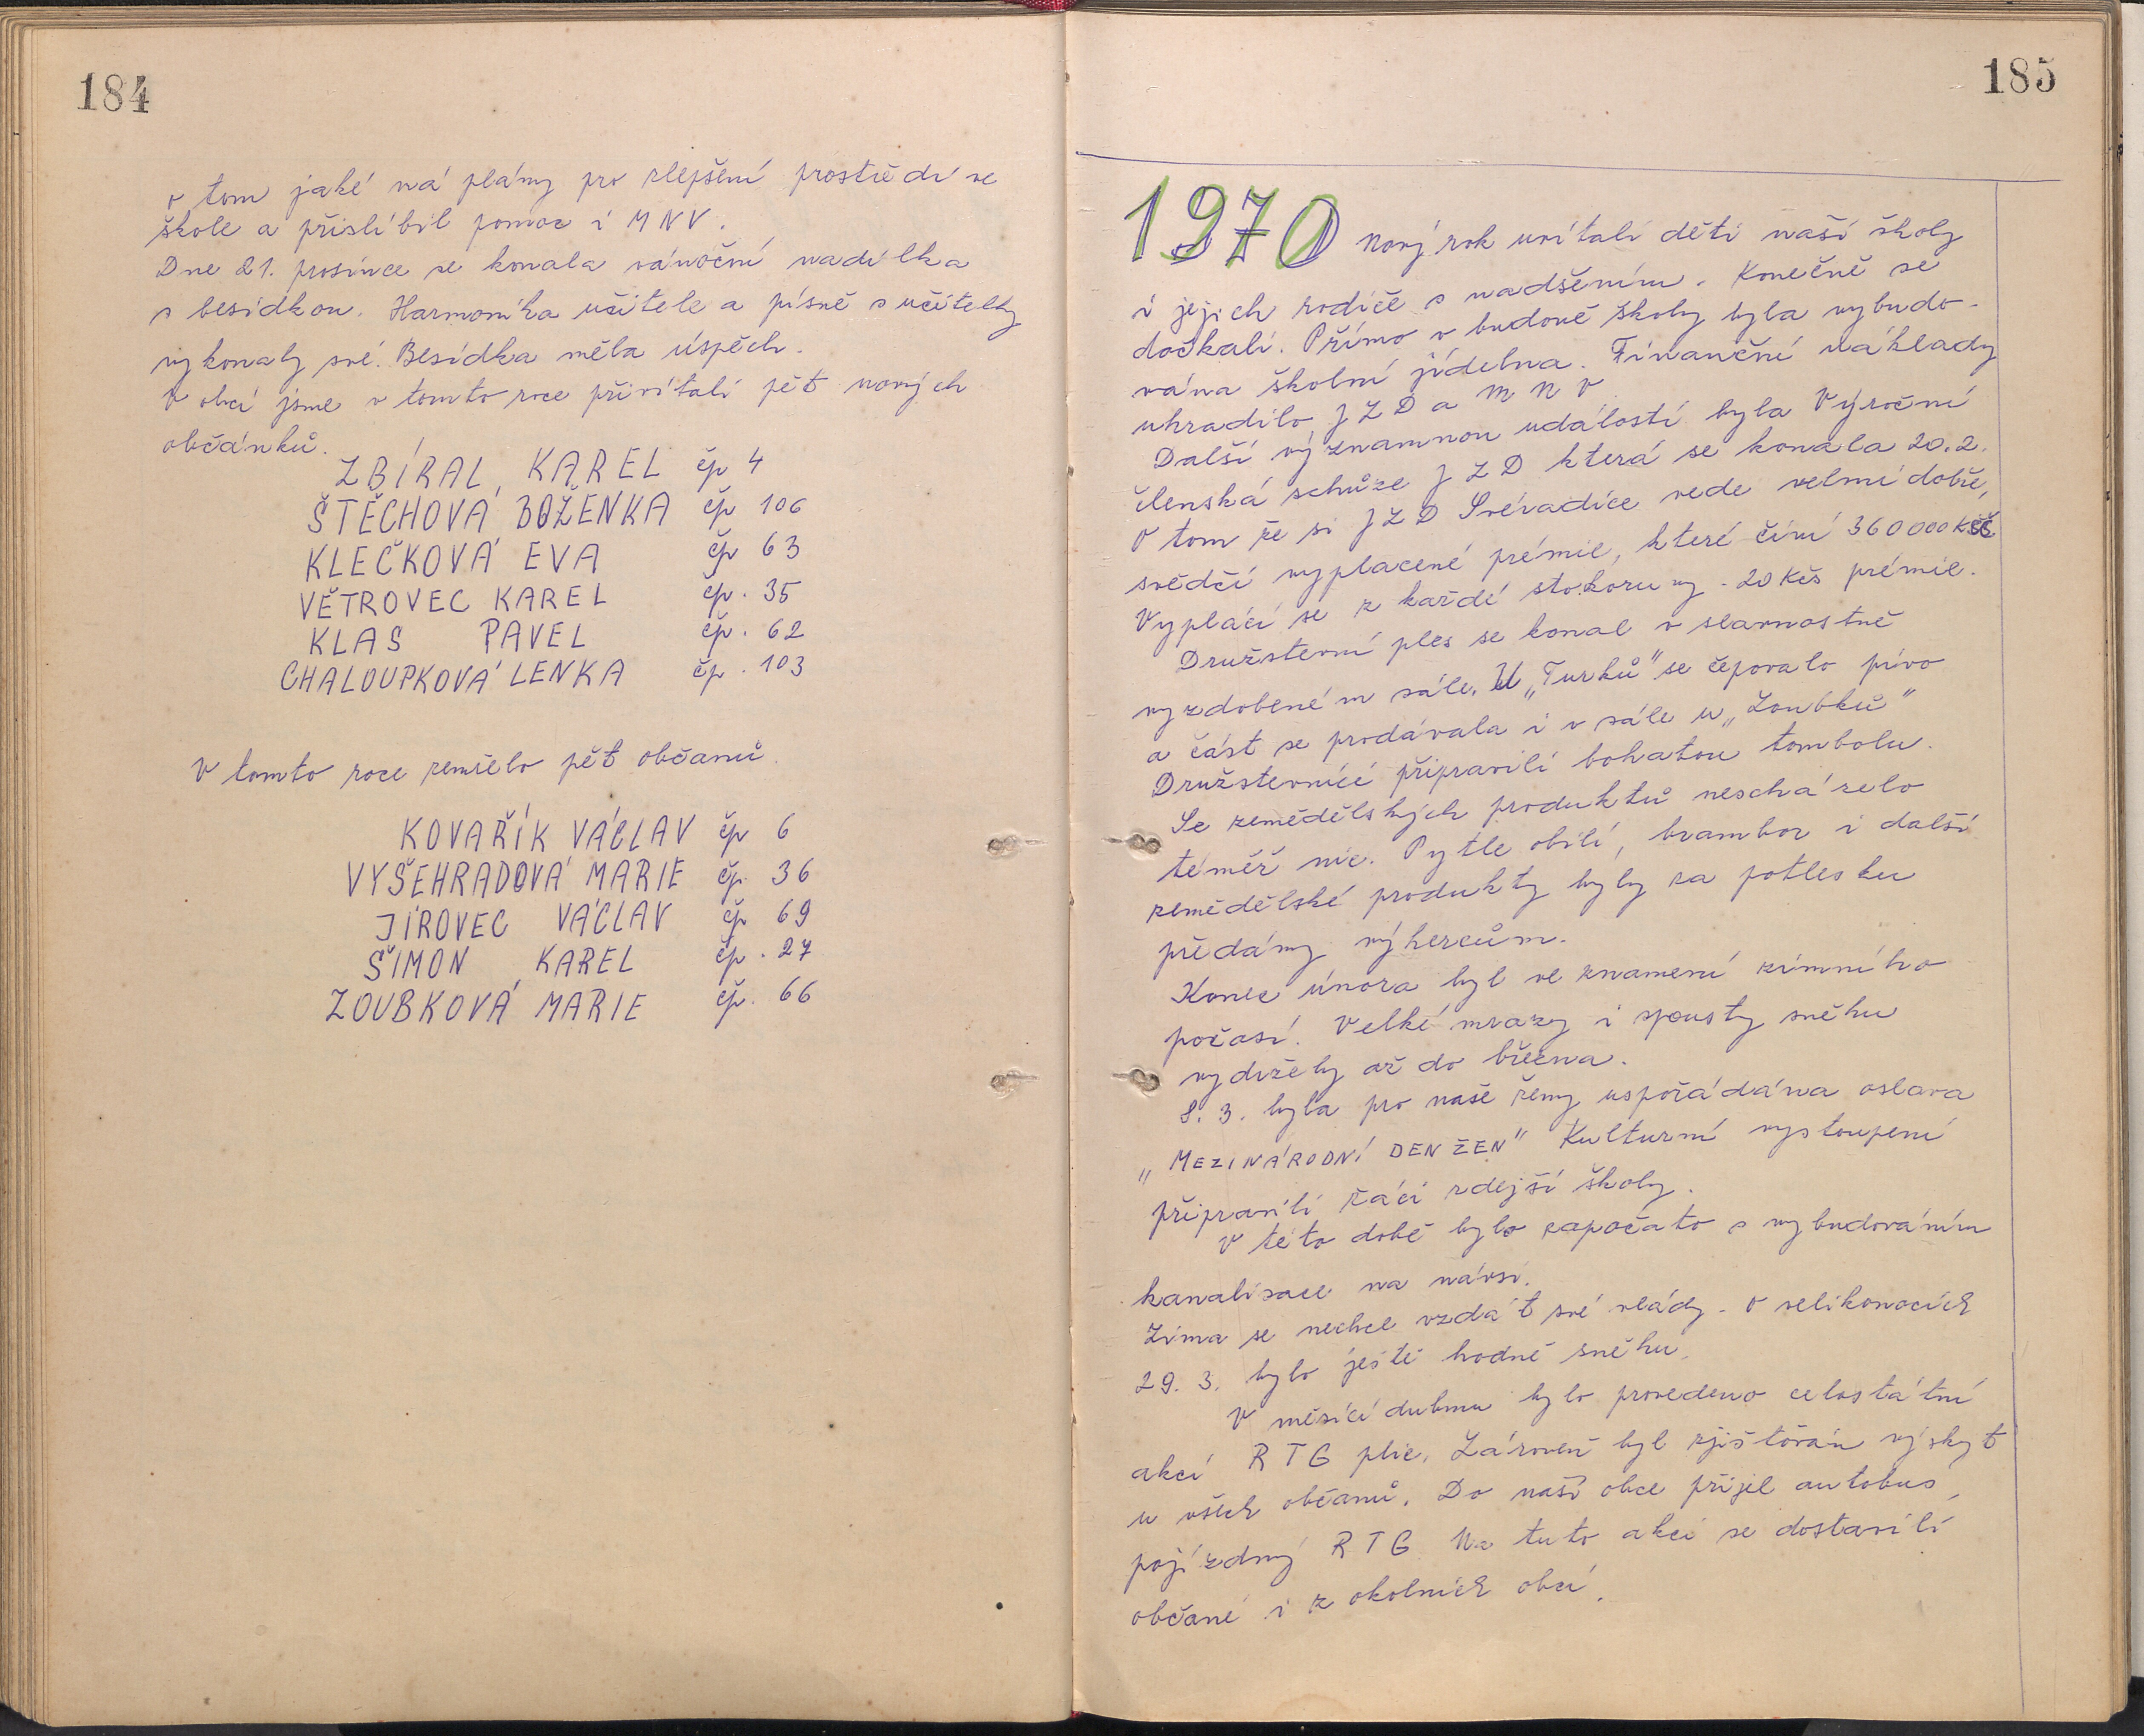 184
o tom jaké má plány pro zlepšení prostředí ve
škole a přislíbil pomoc i MNV.
Dne 21. prosince se konala vánoční nadílka
s besídkou. Harmonika učitele a písně s učitelky
vykonaly své. Besídka měla úspěch.
V obci jsme v tomto roce přivítali pět nových
občánků.
ZBÍRAL KAREL čp 4
ŠTĚCHOVÁ BOŽENKA čp 106
KLEČKOVÁ EVA čp 63
VĚTROVEC KAREL čp. 35
KLAS PAVEL čp. 62
CHALOUPKOVÁ LENKA čp. 103
V tomto roce zemřelo pět občanů.
KOVAŘÍK VÁCLAV čp 6
VYŠEHRADOVÁ MARIE čp. 36
JÍROVEC VÁCLAV čp 69
ŠIMON KAREL čp. 27
ZOUBKOVÁ MARIE čp. 66
185
1970 Nový rok uvítali děti naší školy
i jejich rodiče s nadšením. Konečně se
dočkali. Přímo v budově školy byla vybudo-
vána školní jídelna. Finanční náklady
uhradilo JZD a MNV
Další významnou událostí byla Výroční
členská schůze JZD která se konala 20.2.
O tom že si JZD Svéradice vede velmi dobře,
svědčí vyplacené prémie, které činí 360 000 Kčs
Vyplácí se z každé stokoruny - 20 Kčs prémie.
Družstevní ples se konal v slavnostně
vyzdobeném sále. U „Turků" se čepovalo pivo
a část se prodávala i v sále u „Zoubků"
Družstevníci připravili bohatou tombolu.
Ze zemědělských produktů nescházelo
téměř nic. Pytle obilí, brambor i další
zemědělské produkty byly za potlesku
předány výhercům.
Konec února byl ve znamení zimního
počasí. Velké mrazy i spousty sněhu
vydržely až do března.
8. 3. byla pro naše ženy uspořádána oslava
„MEZINÁRODNÍ DEN ŽEN" Kulturní vystoupení
připravili žáci zdejší školy.
V této době bylo započato s vybudováním
kanalisace na návsi.
Zima se nechce vzdát své vlády. O velikonocích
29. 3. bylo ještě hodně sněhu.
V měsíci dubnu bylo provedeno celostátní
akcí RTG plic. Zároveň byl zjišťován výskyt
u všech občanů. Do naší obce přijel autobus,
pojízdný RTG Na tuto akci se dostavili
občané i z okolních obcí.